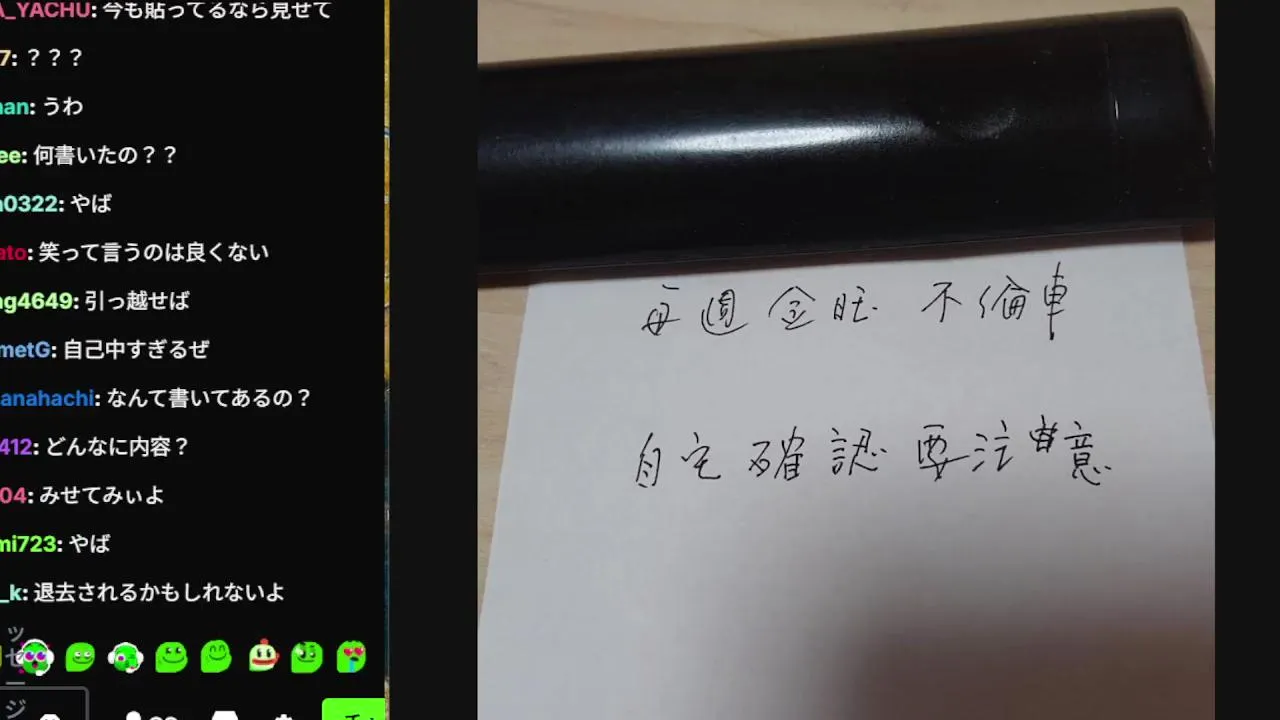 A_YACHU: 今も貼ってるなら見せて
7: ？？？
nan: うわ
ee: 何書いたの？？
a0322: やば
ato: 笑って言うのは良くない
ng4649: 引っ越せば
metG: 自己中すぎるぜ
anahachi: なんて書いてあるの？
412: どんなに内容？
04: みせてみぃよ
mi723: やば
_k: 退去されるかもしれないよ
毎週金旺 不倫車
自宅確認要注意